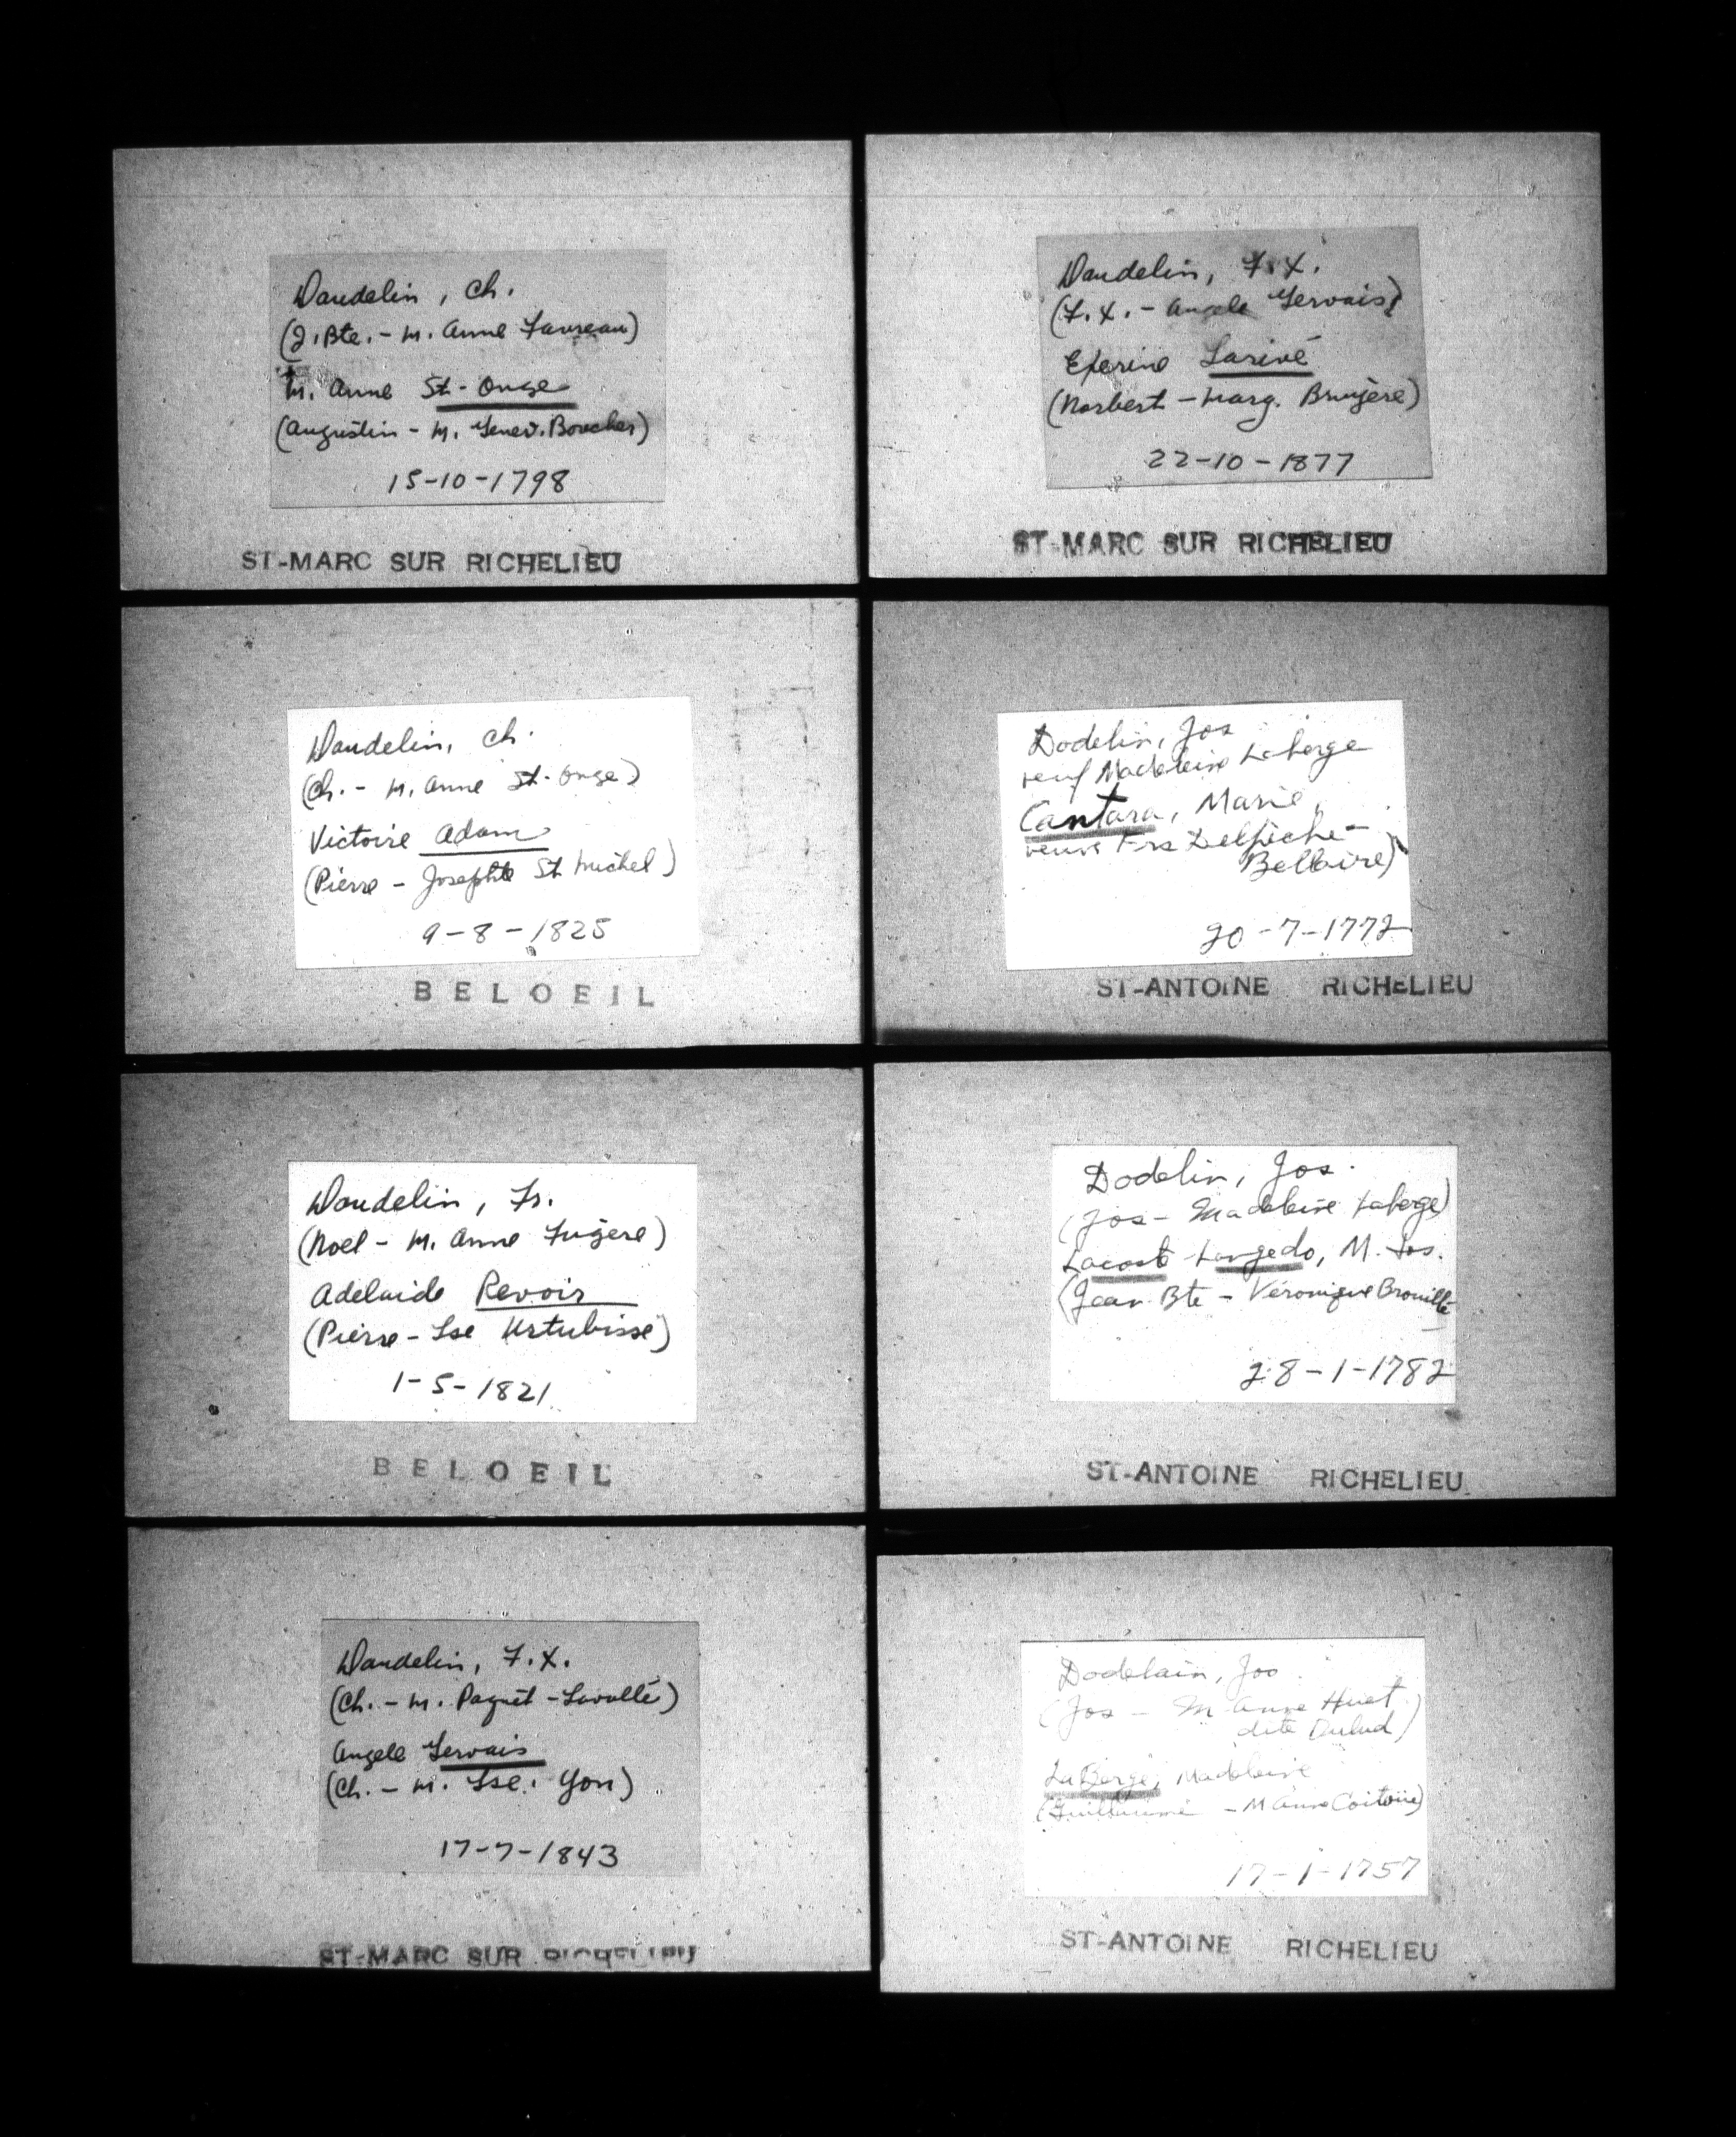 Daudelin, Ch.
(J. Bte. - M. Anne Favreau)
M. Anne St-Onge
(Augustin - M. Genev. Boucher)
15-10-1798
ST-MARC SUR RICHELIEU
Daudelin, Ch.
(Ch. - M. Anne St-Onge)
Victoire Adam
(Pierre - Josephte St Michel)
9-8-1825
BELOEIL
Daudelin, Fr.
(Noel - M. Anne Fugère)
Adelaide Revoir
(Pierre - Lse Urtubisse)
1-5-1821
BELOEIL
Daudelin, F.X.
(Ch. - M. Paquet-Lavallé)
Angele Gervais
(Ch. - M. Lse. Yon)
17-7-1843
ST-MARC SUR RICHELIEU
Daudelin, F.X.
(F.X. - Angele Gervais)
Exerine Larivé
(Norbert - Marg. Bruyère)
22-10-1877
ST-MARC SUR RICHELIEU
Dodelin, Jos
veuf Madeleine Laberge
Cantara, Marie,
veuve Frs Delpiche-
Bellaire)
20-7-1772
ST-ANTOINE RICHELIEU
Dodelin, Jos.
(Jos - Madeleine Laberge)
Lacoste Langedo, M. Jos.
(Jean Bte - Véronique Brouillé
28-1-1782
ST-ANTOINE RICHELIEU
Dodelain, Jos
(Jos - M Anne Huet
dite Dulud)
LaBerge, Madeleine
(Guillaume - M Anne Coitoue)
17-1-1757
ST-ANTOINE RICHELIEU